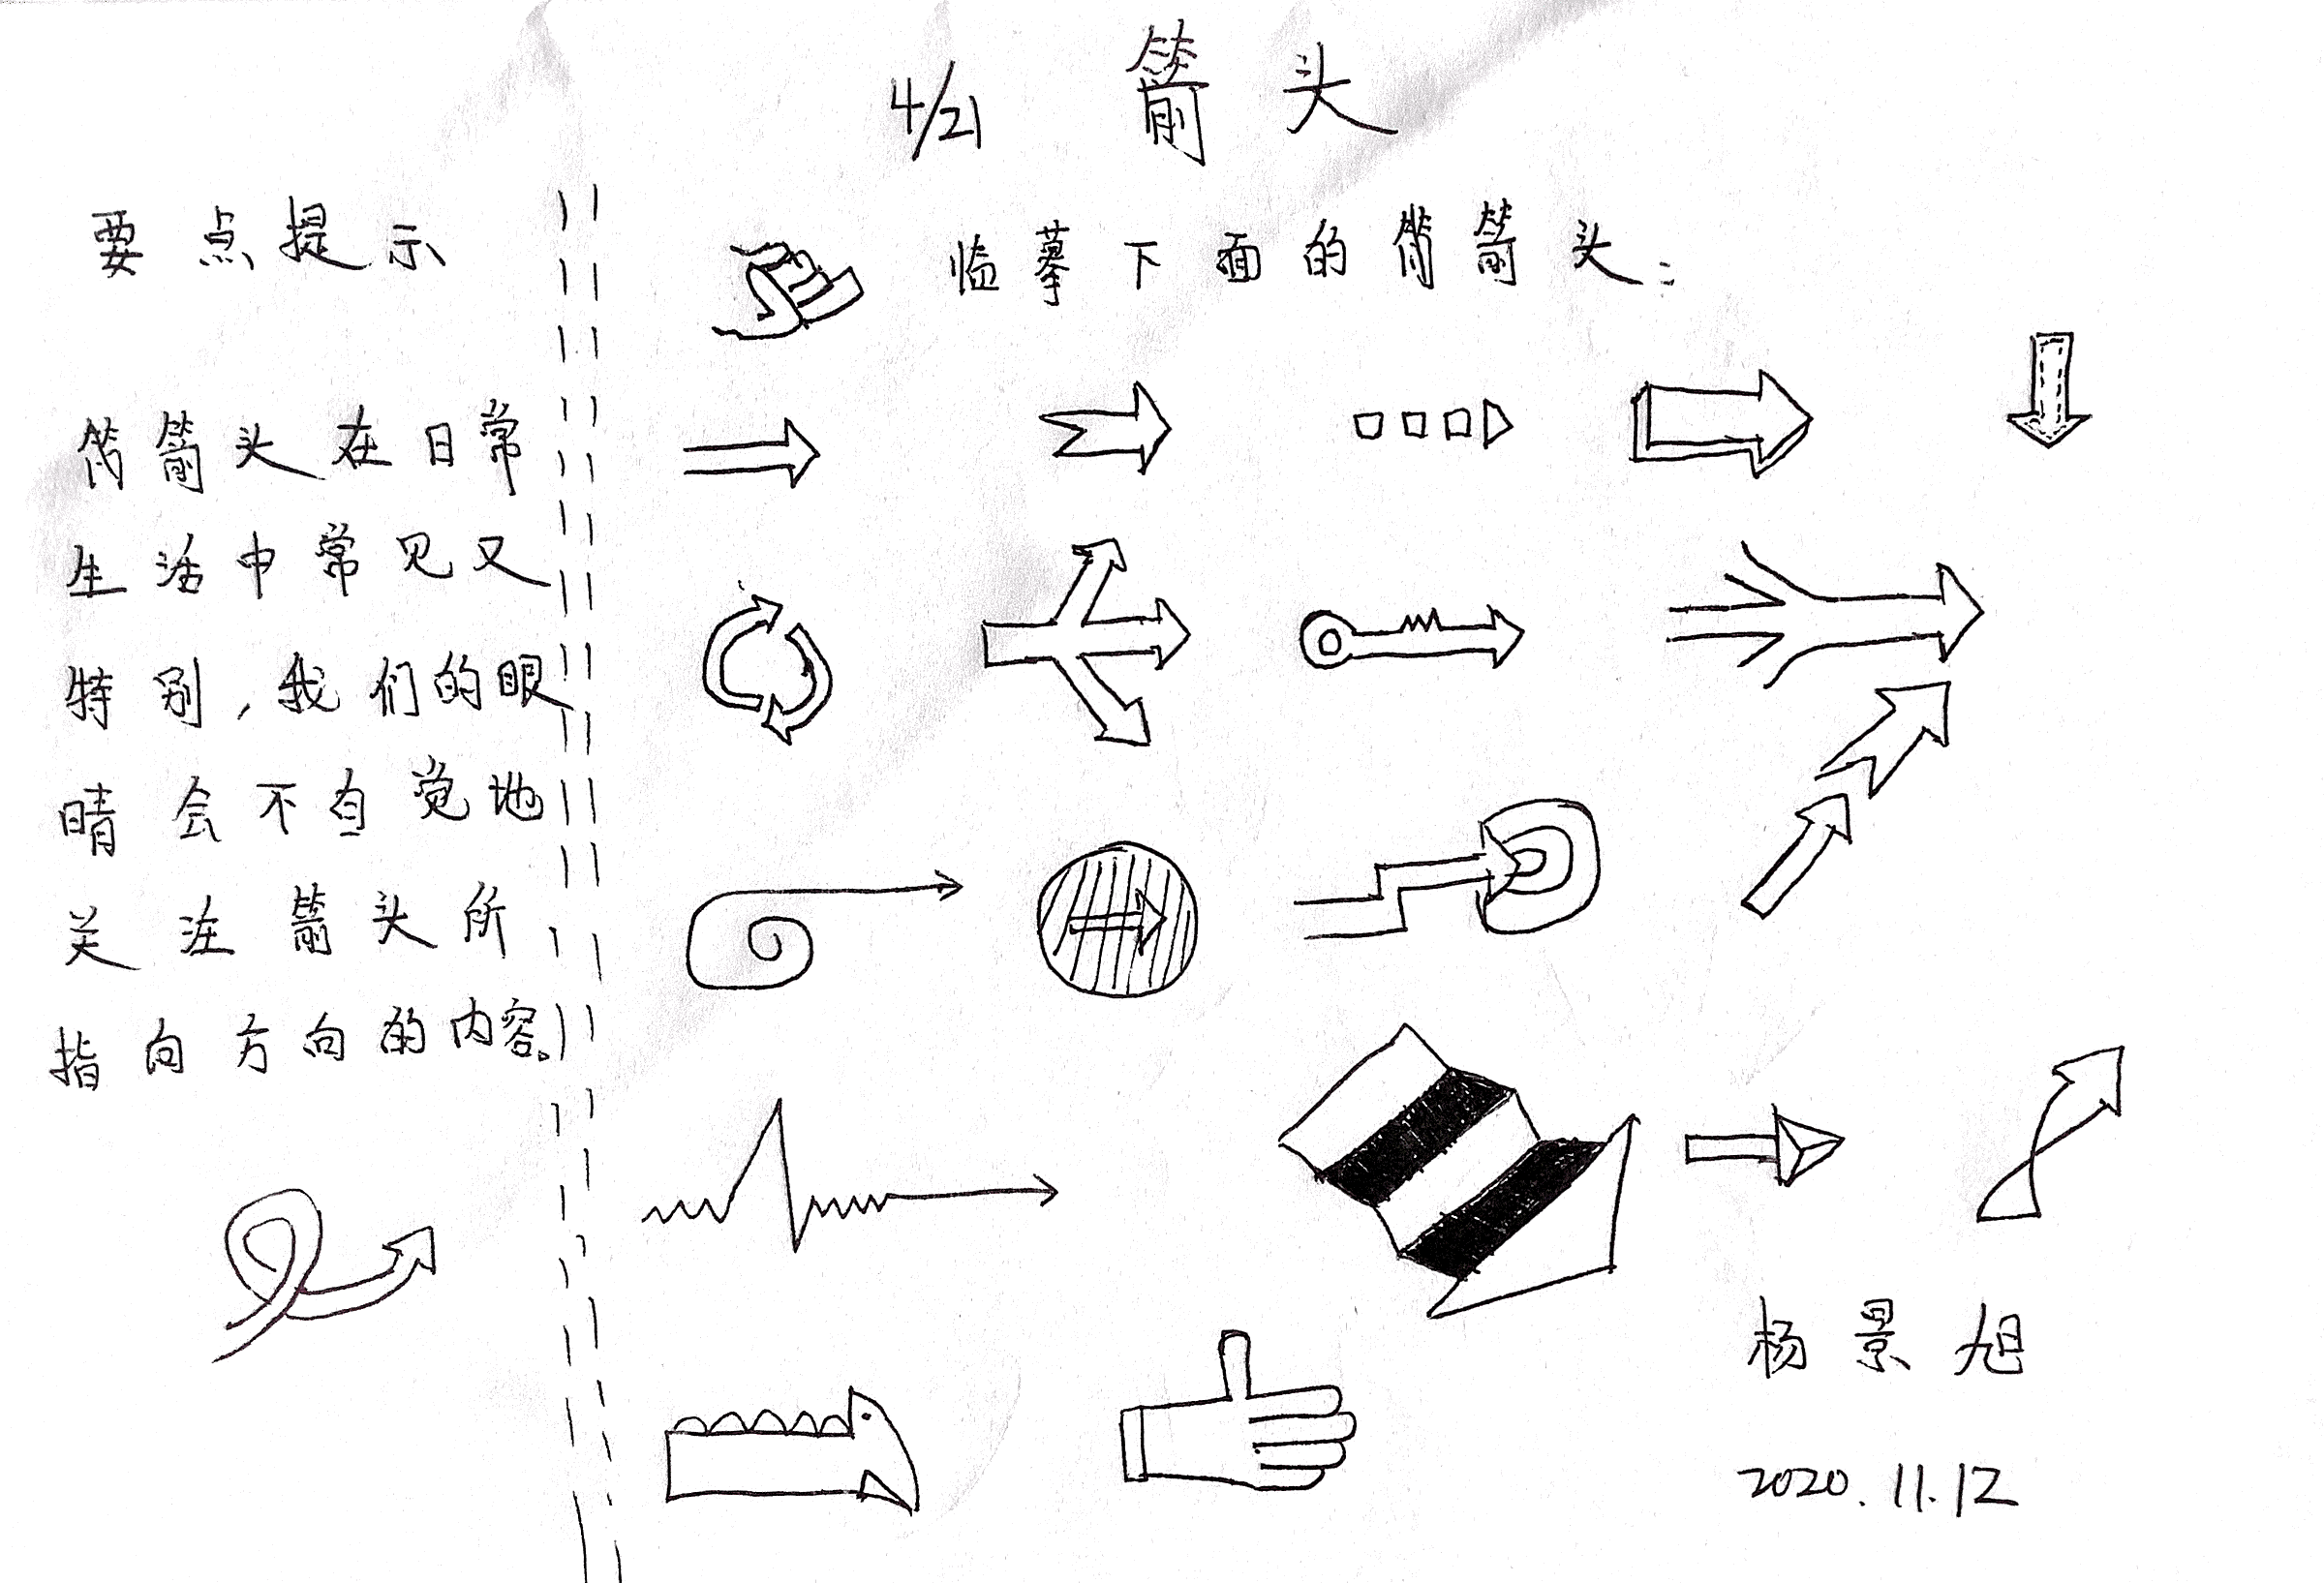 4/21 箭头
要点提示
箭头在日常
生活中常见又
特别，我们的眼
晴会不自觉地
关注箭头所
指向方向的内容。
临摹下面的箭头：
杨景旭
2020.11.12